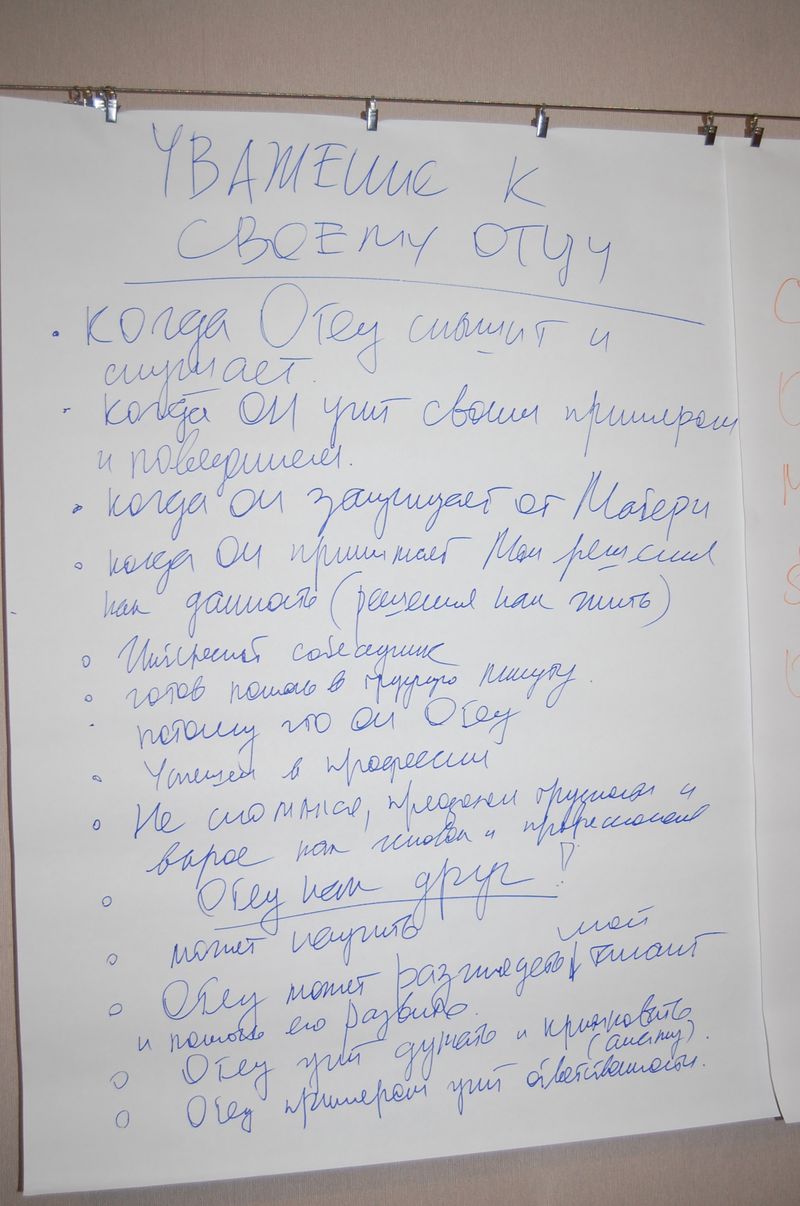 УВАЖЕНИЕ К
СВОЕМУ ОТЦУ
• Когда Отец слышит и
слушает.
• Когда ОН учит своим примером
и поведением.
• Когда ОН защищает от Матери
• Когда ОН принимает Мои решения
как данность (решения как жить)
• Интересный собеседник
• готов помочь в трудную минуту.
• потому что он Отец
• Успешен в профессии
• Не сломался, преодолел трудности и
вырос как человек и профессионал
• Отец как друг!
• может научить
мой
• Отец может разглядеть талант
и помочь его развить.
• Отец учит думать и
• Отец примером учит ответственности.
С
О
М